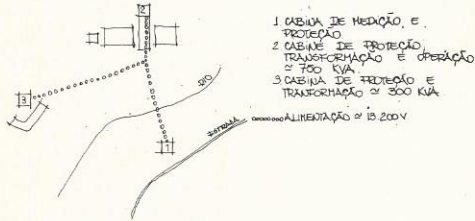 2
3
1
RIO
ESTRADA
1. CABINA DE MEDIÇÃO E
PROTEÇÃO
2. CABINE DE PROTEÇÃO,
TRANSFORMAÇÃO E OPERAÇÃO
≃ 750 KVA.
3. CABINA DE PROTEÇÃO E
TRANFORMAÇÃO ≃ 300 KVA
ALIMENTAÇÃO ≃ 13.200V